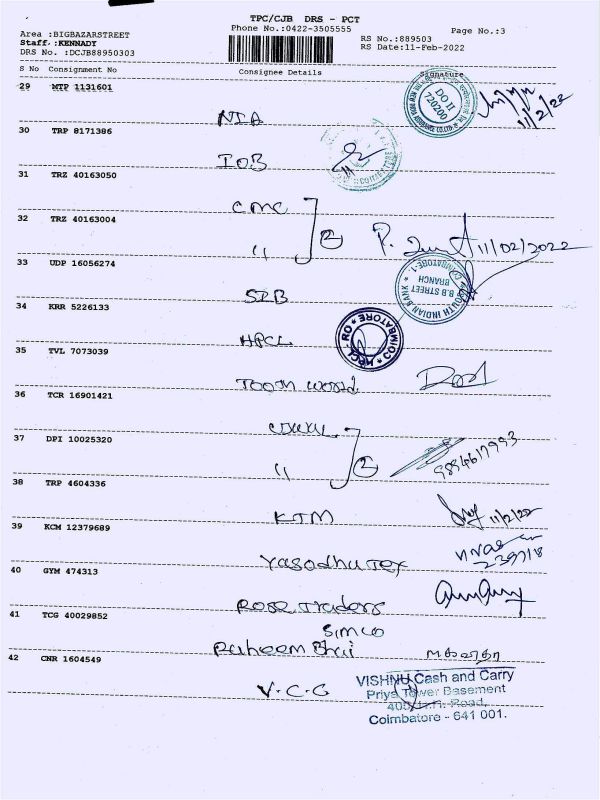 TPC/CJB DRS - PCT
Area :BIGBAZARSTREET
Phone No.:0422-3505555
RS No.:889503
Page No.:3
Staff.:KENNADY
RS Date:11-Feb-2022
DRS No. :DCJB88950303
S No Consignment No Consignee Details Signature
29 MTP 1131601
NIA
DO II 720200
11/2/22
30 TRP 8171386
IOB
31 TRZ 40163050
CMC
32 TRZ 40163004
〃 2 11/02/2022
33 UDP 16056274
SIB
SOUTH INDIAN BANK
B.B STREET BRANCH
COIMBATORE-1
34 KRR 5226133
HPCL
HPCL-RO COIMBATORE
35 TVL 7073039
Toom world
36 TCR 16901421
37 DPI 10025320
〃 2
38 TRP 4604336
KTM
11/2/22
39 KCM 12379689
Yasodha Tex
40 GYM 474313
Rose Traders
41 TCG 40029852
Simco
Raheem Bhai
42 CNR 1604549
V.C.C
VISHNU Cash and Carry
Priya Tower Basement
Road,
Coimbatore - 641 001.